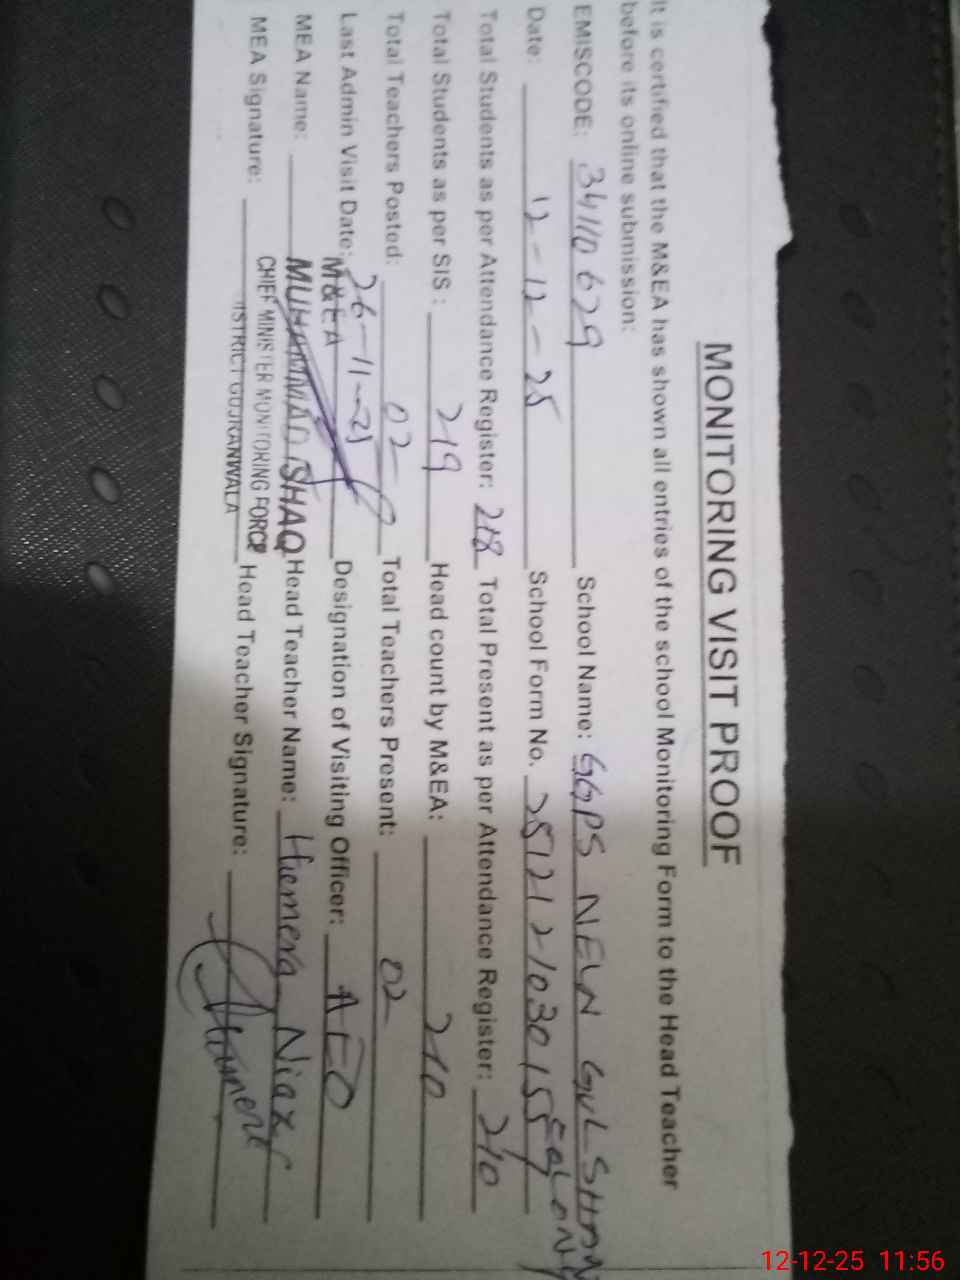 MONITORING VISIT PROOF
It is certified that the M&EA has shown all entries of the school Monitoring Form to the Head Teacher
before its online submission:
EMISCODE: 34110629 School Name: GGPS NEW GULSHAN COLONY
Date: 12-12-25 School Form No. 2512121030155
Total Students as per Attendance Register: 218 Total Present as per Attendance Register: 210
Total Students as per SIS: 219 Head count by M&EA: 210
Total Teachers Posted: 02 Total Teachers Present: 02
Last Admin Visit Date: 26-11-25 Designation of Visiting Officer: AEO
M&EA
MEA Name: MUHAMMAD ISHAQ Head Teacher Name: Humera Niaz
CHIEF MINISTER MONITORING FORCE
MEA Signature: DISTRICT GUJRANWALA Head Teacher Signature:
12-12-25 11:56